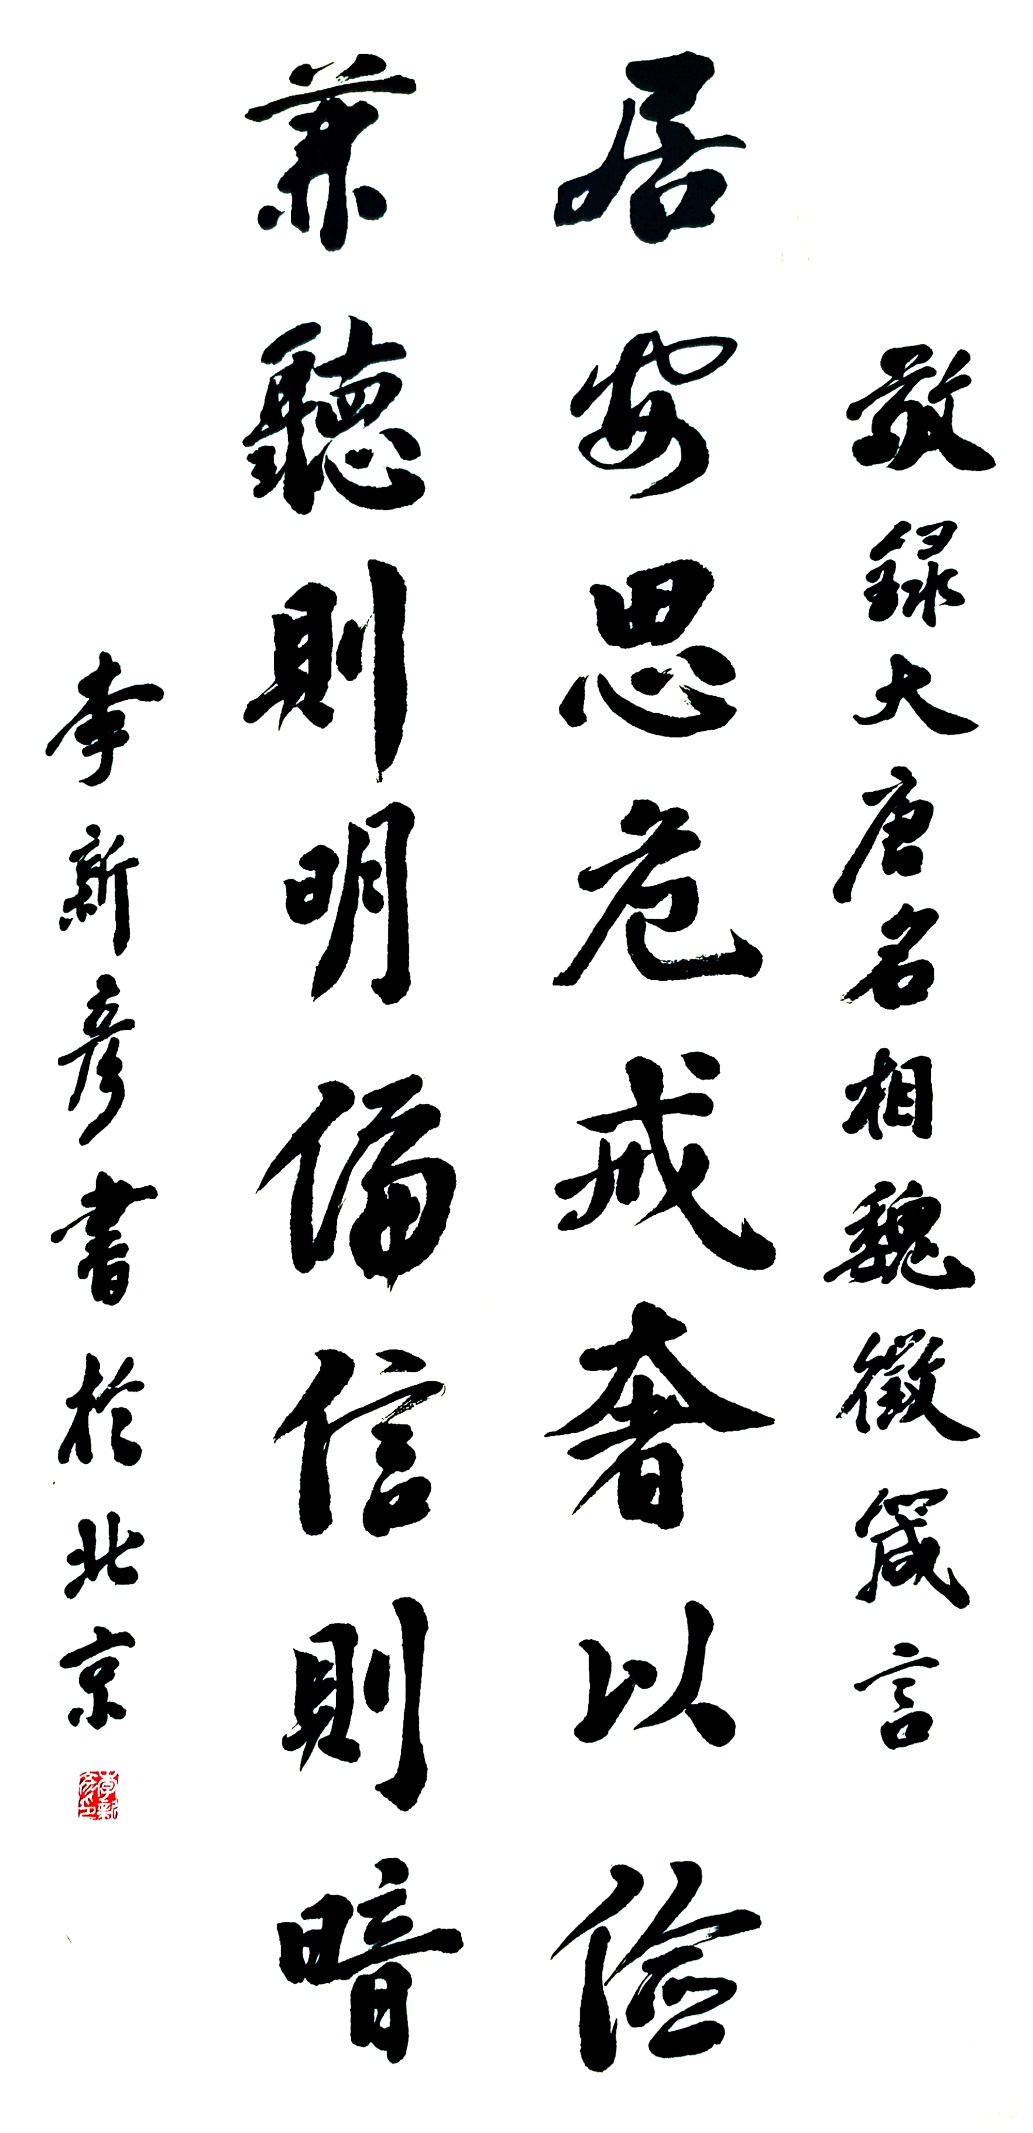 敬録大唐名相魏徵箴言
居安思危戒奢以儉
兼聽則明偏信則暗
李新彦書於北京